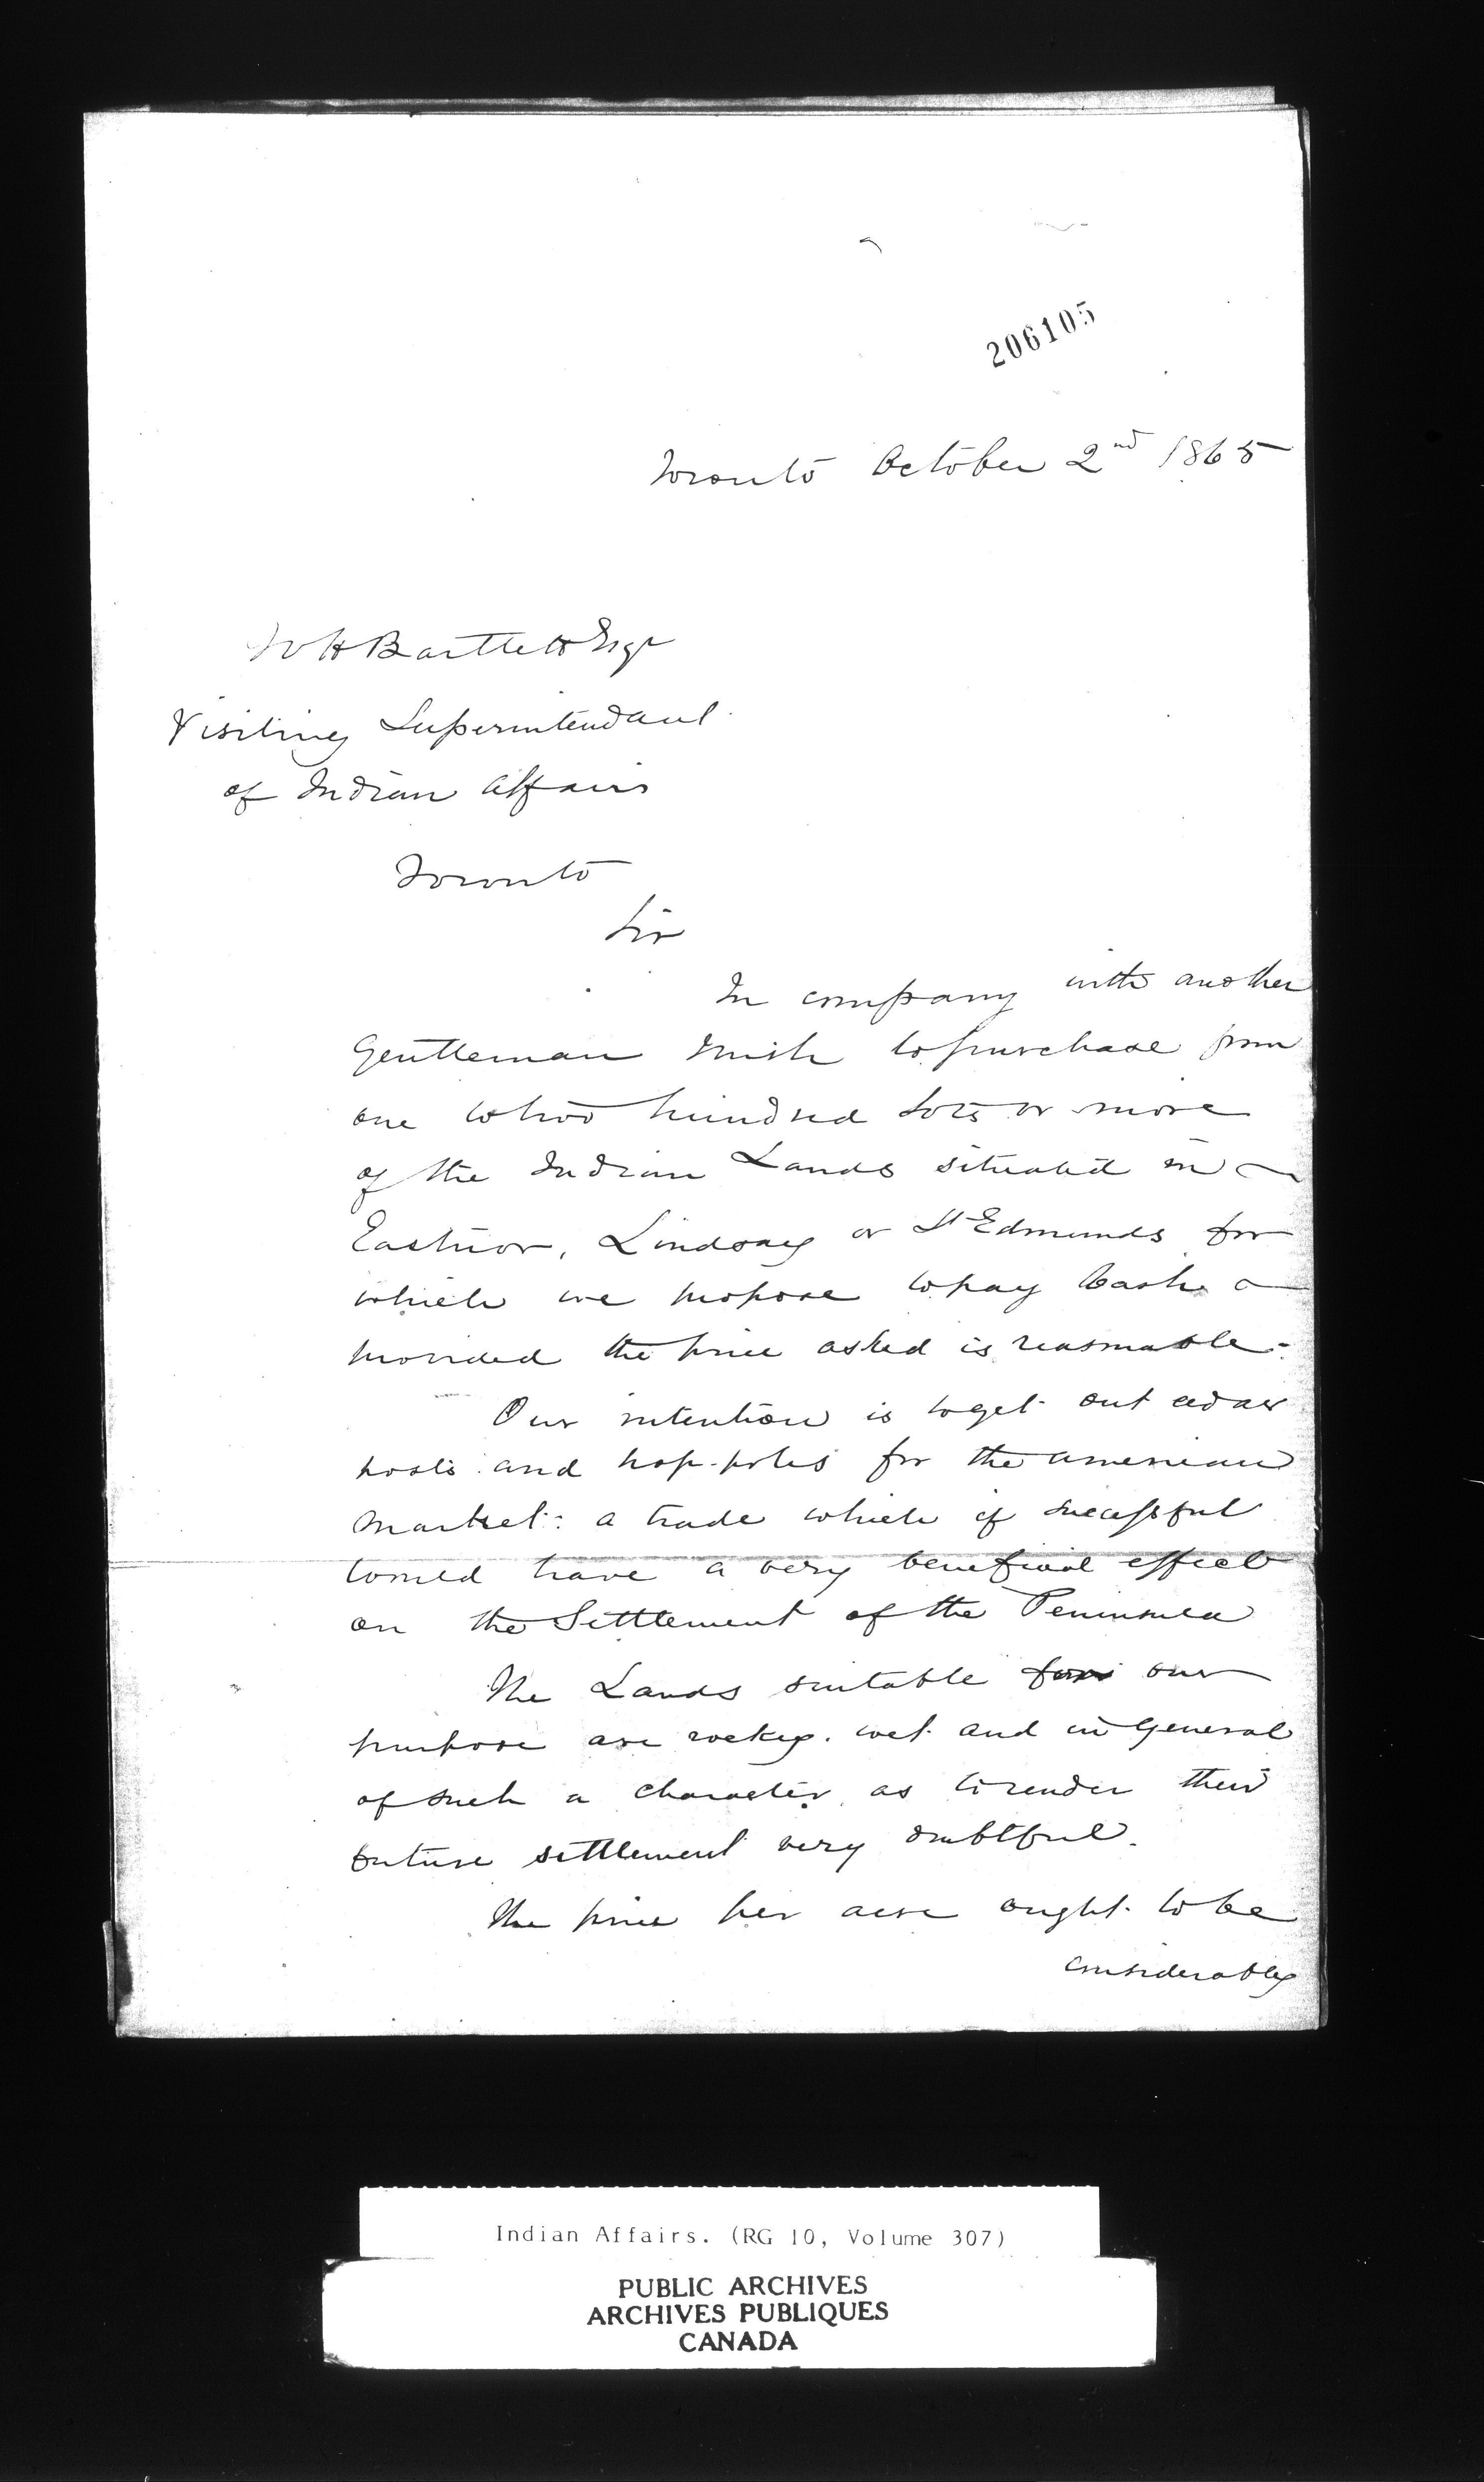 206105
Toronto October 2nd 1865
W H Bartlett Esqr
Visiting Superintendant
of Indian Affairs
Toronto
Sir
In company with another
Gentleman wish to purchase from
one to two hundred Lots or more
of the Indian Lands situated in
Eastnor, Lindsay or St Edmunds for
which we propose to pay Cash
provided the price asked is reasonable.
Our intention is to get out cedar
posts and hop-poles for the american
market: a trade which if successful
would have a very beneficial effect
on the Settlement of the Peninsula
The Lands suitable for our
purpose are rocky. wet and in General
of such a character as to render their
future settlement very doubtful.
The price per acre ought to be
considerably
Indian Affairs. (RG 10, Volume 307)
PUBLIC ARCHIVES
ARCHIVES PUBLIQUES
CANADA